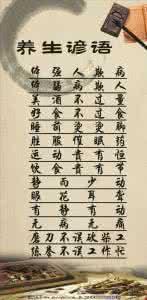 养生谚语
体强人欺病
体弱病欺人
美酒不过量
好食不过食
睡前烫烫脚
胜服催眠药
运动贵有恒
饮食贵有节
静而少动
眼花耳聋
有静有动
无病无痛
磨刀不误砍柴工
拳不误工作忙